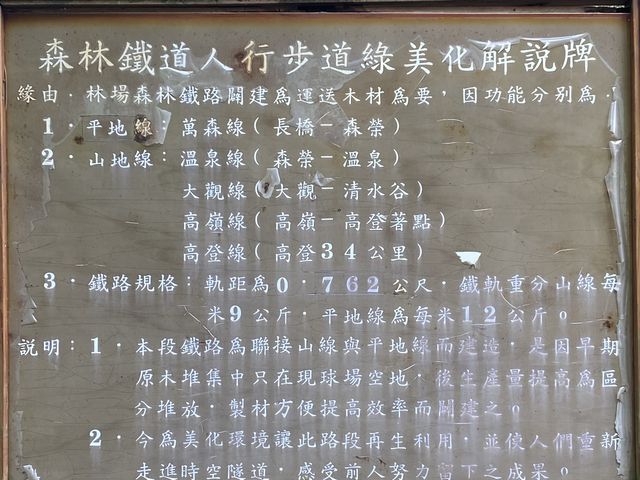 森林鐵道人行步道綠美化解說牌
緣由．林場森林鐵路闢建為運送木材為要，因功能分別為：
1．平地線：萬森線（長橋－森榮）
2．山地線：溫泉線（森榮－溫泉）
大觀線（大觀－清水谷）
高嶺線（高嶺－高登著點）
高登線（高登34公里）
3．鐵路規格：軌距為0．762公尺．鐵軌重分山線每
米9公斤．平地線為每米12公斤。
說明：1．本段鐵路為聯接山線與平地線而建造．是因早期
原木堆集中只在現球場空地．後生產量提高為區
分堆放．製材方便提高效率而闢建之。
2．今為美化環境讓此路段再生利用．並使人們重新
走進時空隧道．感受前人努力留下之成果。